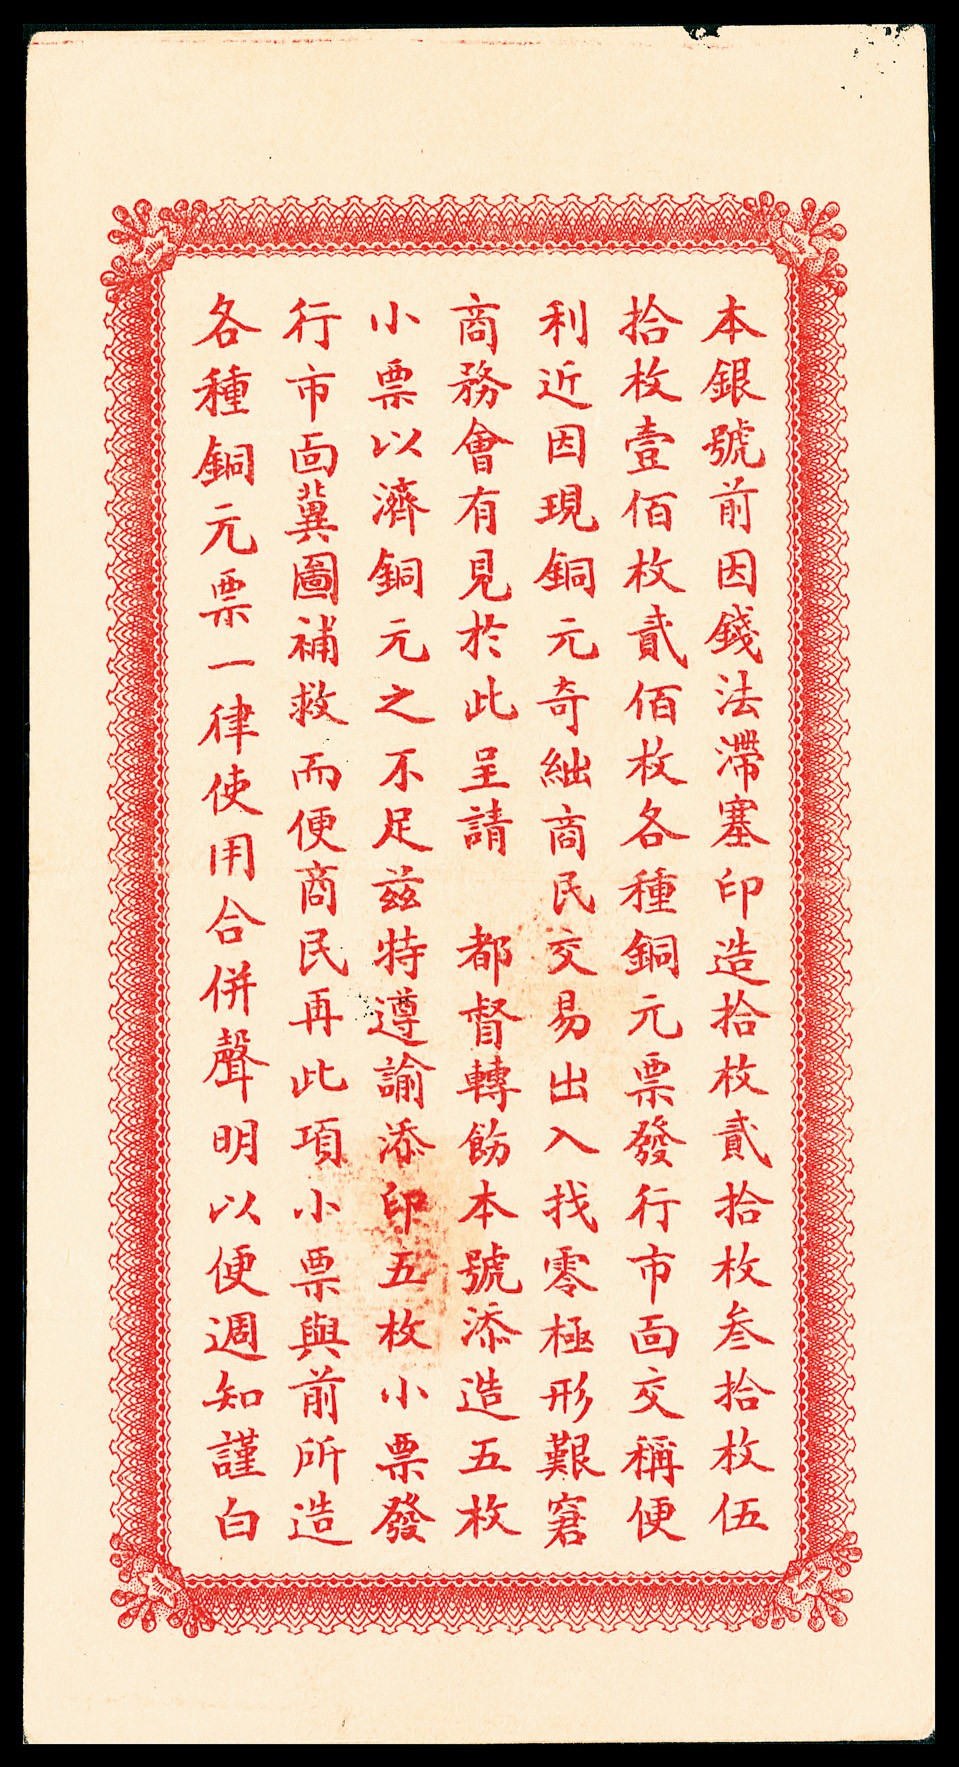 本銀號前因錢法滯塞印造拾枚貳拾枚叁拾枚伍
拾枚壹佰枚貳佰枚各種銅元票發行市面交稱便
利近因現銅元奇絀商民交易出入找零極形艱窘
商務會有見於此呈請　都督轉飭本號添造五枚
小票以濟銅元之不足茲特遵諭添印五枚小票發
行市面冀圖補救而便商民再此項小票與前所造
各種銅元票一律使用合併聲明以便週知謹白